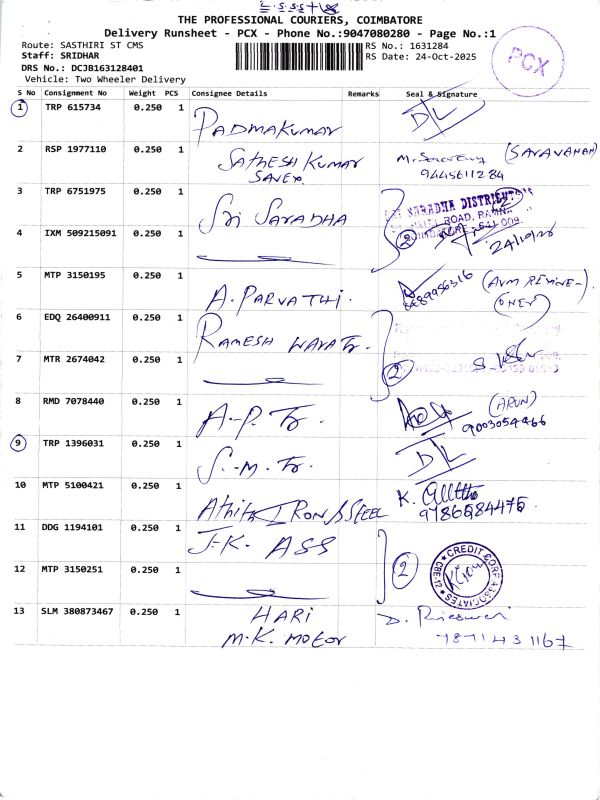 THE PROFESSIONAL COURIERS, COIMBATORE
Delivery Runsheet - PCX - Phone No.:9047080280 - Page No.:1
Route: SASTHIRI ST CMS
Staff: SRIDHAR
DRS No.: DCJB163128401
Vehicle: Two Wheeler Delivery
RS No.: 1631284
RS Date: 24-Oct-2025
PCX
S No Consignment No Weight PCS Consignee Details Remarks Seal & Signature
1 TRP 615734 0.250 1 PADMAKUMAR D/L
2 RSP 1977110 0.250 1 SATHESH KUMAR (SARAVANAN)
9445611284
3 TRP 6751975 0.250 1 SRI SARADHA
4 IXM 509215091 0.250 1 2
5 MTP 3150195 0.250 1 A. PARVATHI.
6 EDQ 26400911 0.250 1 RAMESH
7 MTR 2674042 0.250 1 2
8 RMD 7078440 0.250 1 A-P. Tr. (ARUN)
9003054466
9 TRP 1396031 0.250 1 S.-M. Tr. D/L
10 MTP 5100421 0.250 1 Athith IRON & STEEL K.
9786584475
11 DDG 1194101 0.250 1 J-K. ASS
12 MTP 3150251 0.250 1 2 CREDIT CORP ASSOCIATES CBE-12
13 SLM 380873467 0.250 1 HARI D.
M.K. MOTOR 7871431167